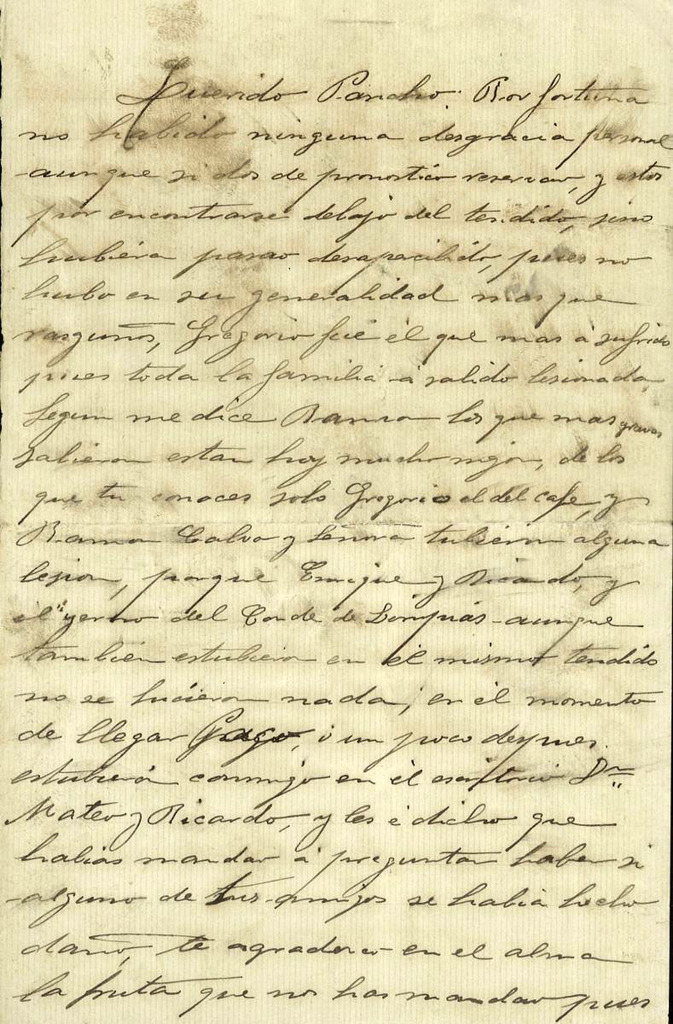 Querido Pancho: Por fortuna
no habido ninguna desgracia personal
aunque si dos de pronostico reservao, y estos
por encontrarse debajo del tendido, sino
hubiera pasao desapercibido, pues no
hubo en su generalidad mas que
rasguños, Gregorio fué él que mas á sufrido
pues toda la familia á salido lesionada,
Segun me dice Ramon los que mas graves
salieron estan hoy mucho mejor, de los
que tu conoces solo Gregorio el del cafe, y
Ramon Calvo y Señora tubieron alguna
lesion, porque Enrique y Ricardo, y
el yerno del Conde de aunque
también estubieron en él mismo tendido
no se hicieron nada; en él momento
de llegar ó un poco despues
estubieron conmigo en él escritorio Dn
Mateo y Ricardo, y les é dicho que
habias mandao á preguntar haber si
alguno de tus amigos se habia hecho
daño, te agradezco en el alma
la fruta que nos has mandao pues